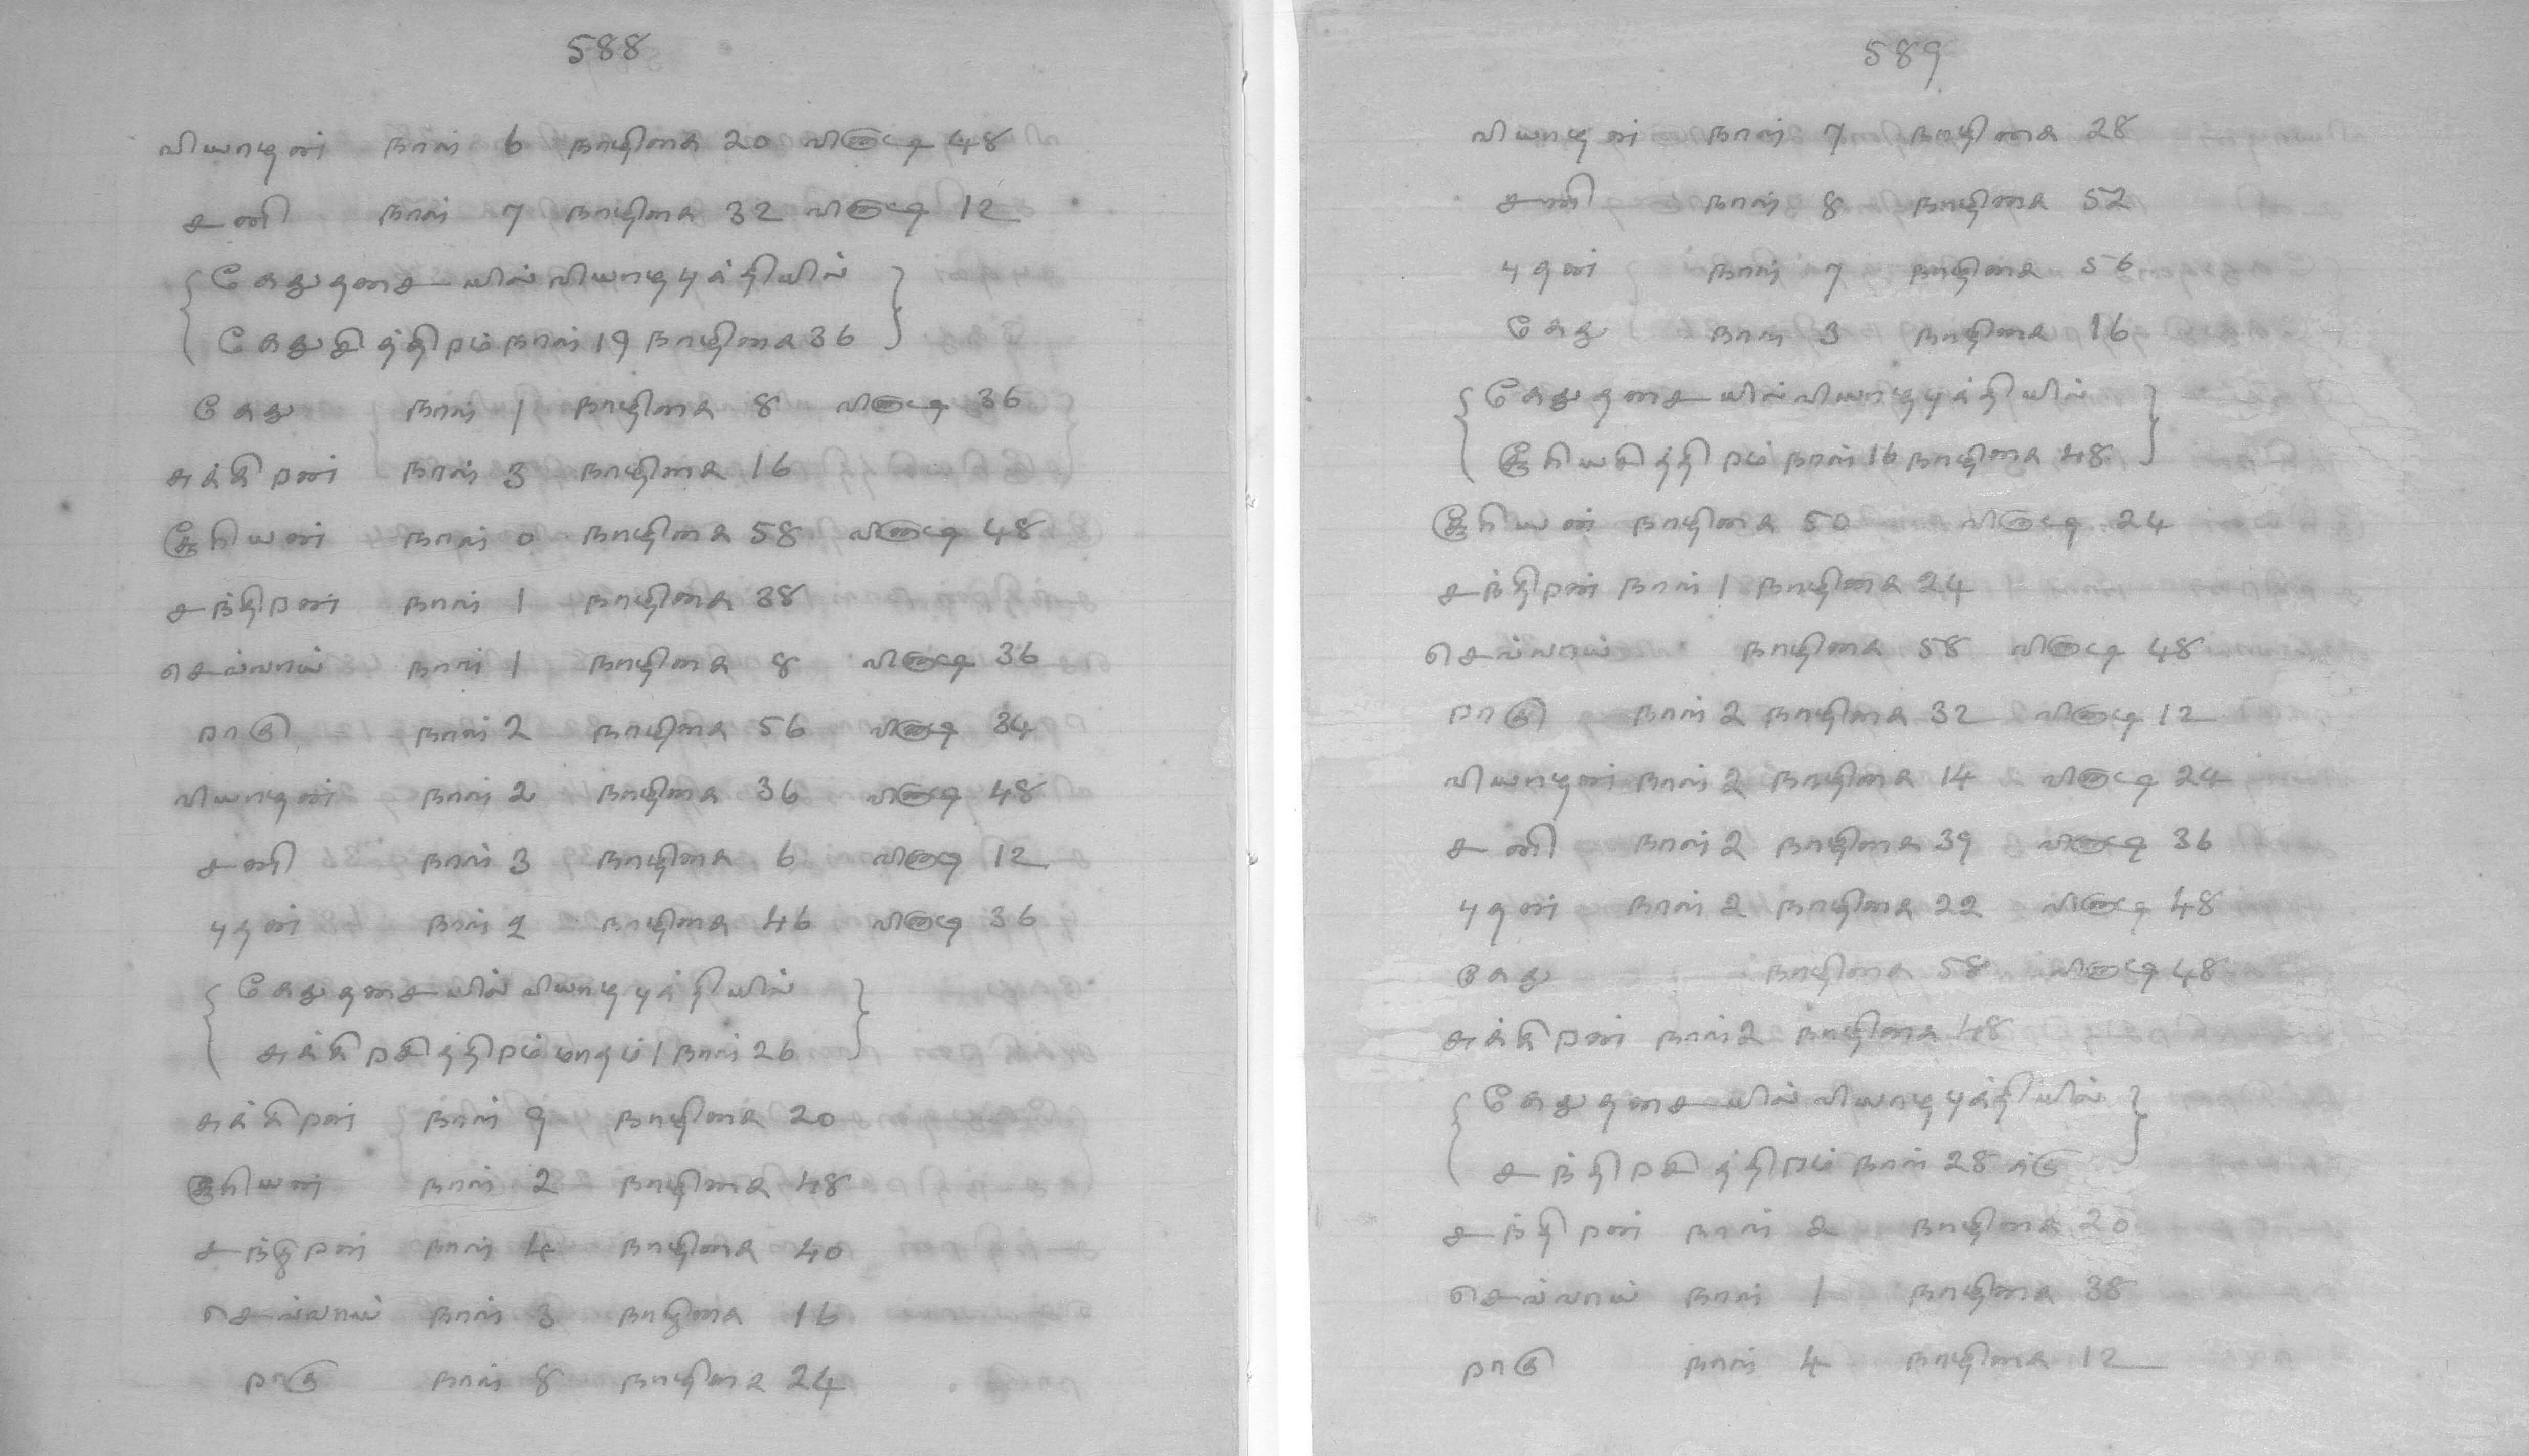 588
வியாழன் நாள் 6 நாழிகை 20 வினாடி 48
சனி நாள் 7 நாழிகை 32 வினாடி 12
கேதுதசையில் வியாழபுக்தியில்
கேதுசித்திரம் நாள் 19 நாழிகை 36
கேது நாள் 1 நாழிகை 8 வினாடி 36
சுக்கிரன் நாள் 3 நாழிகை 16
சூரியன் நாள் 0 நாழிகை 58 வினாடி 48
சந்திரன் நாள் 1 நாழிகை 38
செவ்வாய் நாள் 1 நாழிகை 8 வினாடி 36
ராகு நாள் 2 நாழிகை 56 வினாடி 34
வியாழன் நாள் 2 நாழிகை 36 வினாடி 48
சனி நாள் 3 நாழிகை 6 வினாடி 12
புதன் நாள் 2 நாழிகை 46 வினாடி 36
கேதுதசையில் வியாழபுக்தியில்
சுக்கிரசித்திரம் மாதம் 1 நாள் 26
சுக்கிரன் நாள் 9 நாழிகை 20
சூரியன் நாள் 2 நாழிகை 48
சந்திரன் நாள் 4 நாழிகை 40
செவ்வாய் நாள் 3 நாழிகை 16
ராகு நாள் 8 நாழிகை 24
589
வியாழன் நாள் 7 நாழிகை 28
சனி நாள் 8 நாழிகை 52
புதன் நாள் 7 நாழிகை 56
கேது நாள் 3 நாழிகை 16
கேதுதசையில் வியாழபுக்தியில்
சூரியசித்திரம் நாள் 16 நாழிகை 48
சூரியன் நாழிகை 50 வினாடி 24
சந்திரன் நாள் 1 நாழிகை 24
செவ்வாய் நாழிகை 58 வினாடி 48
ராகு நாள் 2 நாழிகை 32 வினாடி 12
வியாழன் நாள் 2 நாழிகை 14 வினாடி 24
சனி நாள் 2 நாழிகை 39 வினாடி 36
புதன் நாள் 2 நாழிகை 22 வினாடி 48
கேது நாழிகை 58 வினாடி 48
சுக்கிரன் நாள் 2 நாழிகை 48
கேதுதசையில் வியாழபுக்தியில்
சந்திரசித்திரம் நாள் 28 க்கு
சந்திரன் நாள் 2 நாழிகை 20
செவ்வாய் நாள் 1 நாழிகை 38
ராகு நாள் 4 நாழிகை 12